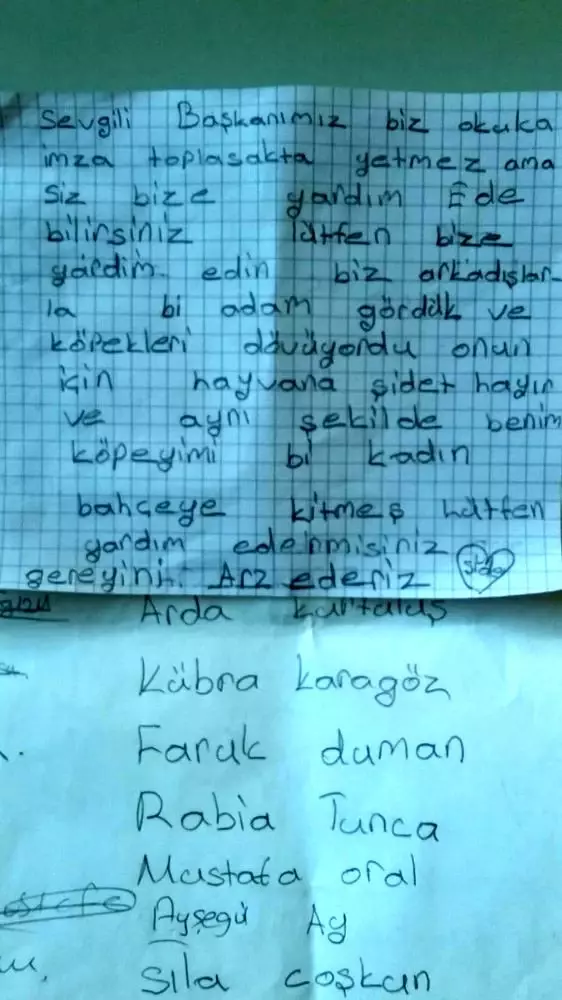 Sevgili Başkanımız biz okuka
imza toplasakta yetmez ama
siz bize yardım Ede
bilirsiniz lütfen bize
yardim edin biz arkadışlar-
la bi adam gördük ve
köpekleri dövüyordu onun
için hayvana şidet hayır
ve aynı şekilde benim
köpeyimi bi kadın
bahçeye kitmeş lütfen
yardım edermisiniz
gereyini. Arz ederiz
Arda kurtuluş
Kübra karagöz
Faruk duman
Rabia Tunca
Mustafa oral
Ayşegü Ay
Sıla coşkun